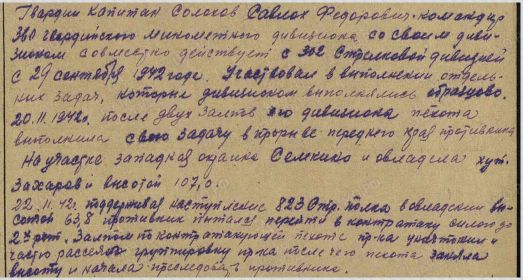 Гвардии Капитан Солохов Федорович-командир
380 гвардейского миномётного дивизиона со своим диви-
зионом совместно действует с 302 Стрелковой дивизией
с 29 сентября 1942 года. Участвовал в выполнении отдель-
ных задач, которые дивизионом выполнялись образцово.
20.11.1942г. после двух Залпов его дивизиона пехота
выполнила свою задачу в прорыве переднего края противника
На участке западная окраина Семкино и овладела хут.
Захаров и высотой 107,0.
22.11.42г поддерживая наступление 823 Стр. полка в овладении вы-
сотой 63,8 противник пытался перейти в контратаку силою до
2х рот. Залпом по контратакующей пехоте пр-ка уничтожил и
частью рассеял группировку пр-ка после чего пехота заняла
высоту и начала преследовать противника.